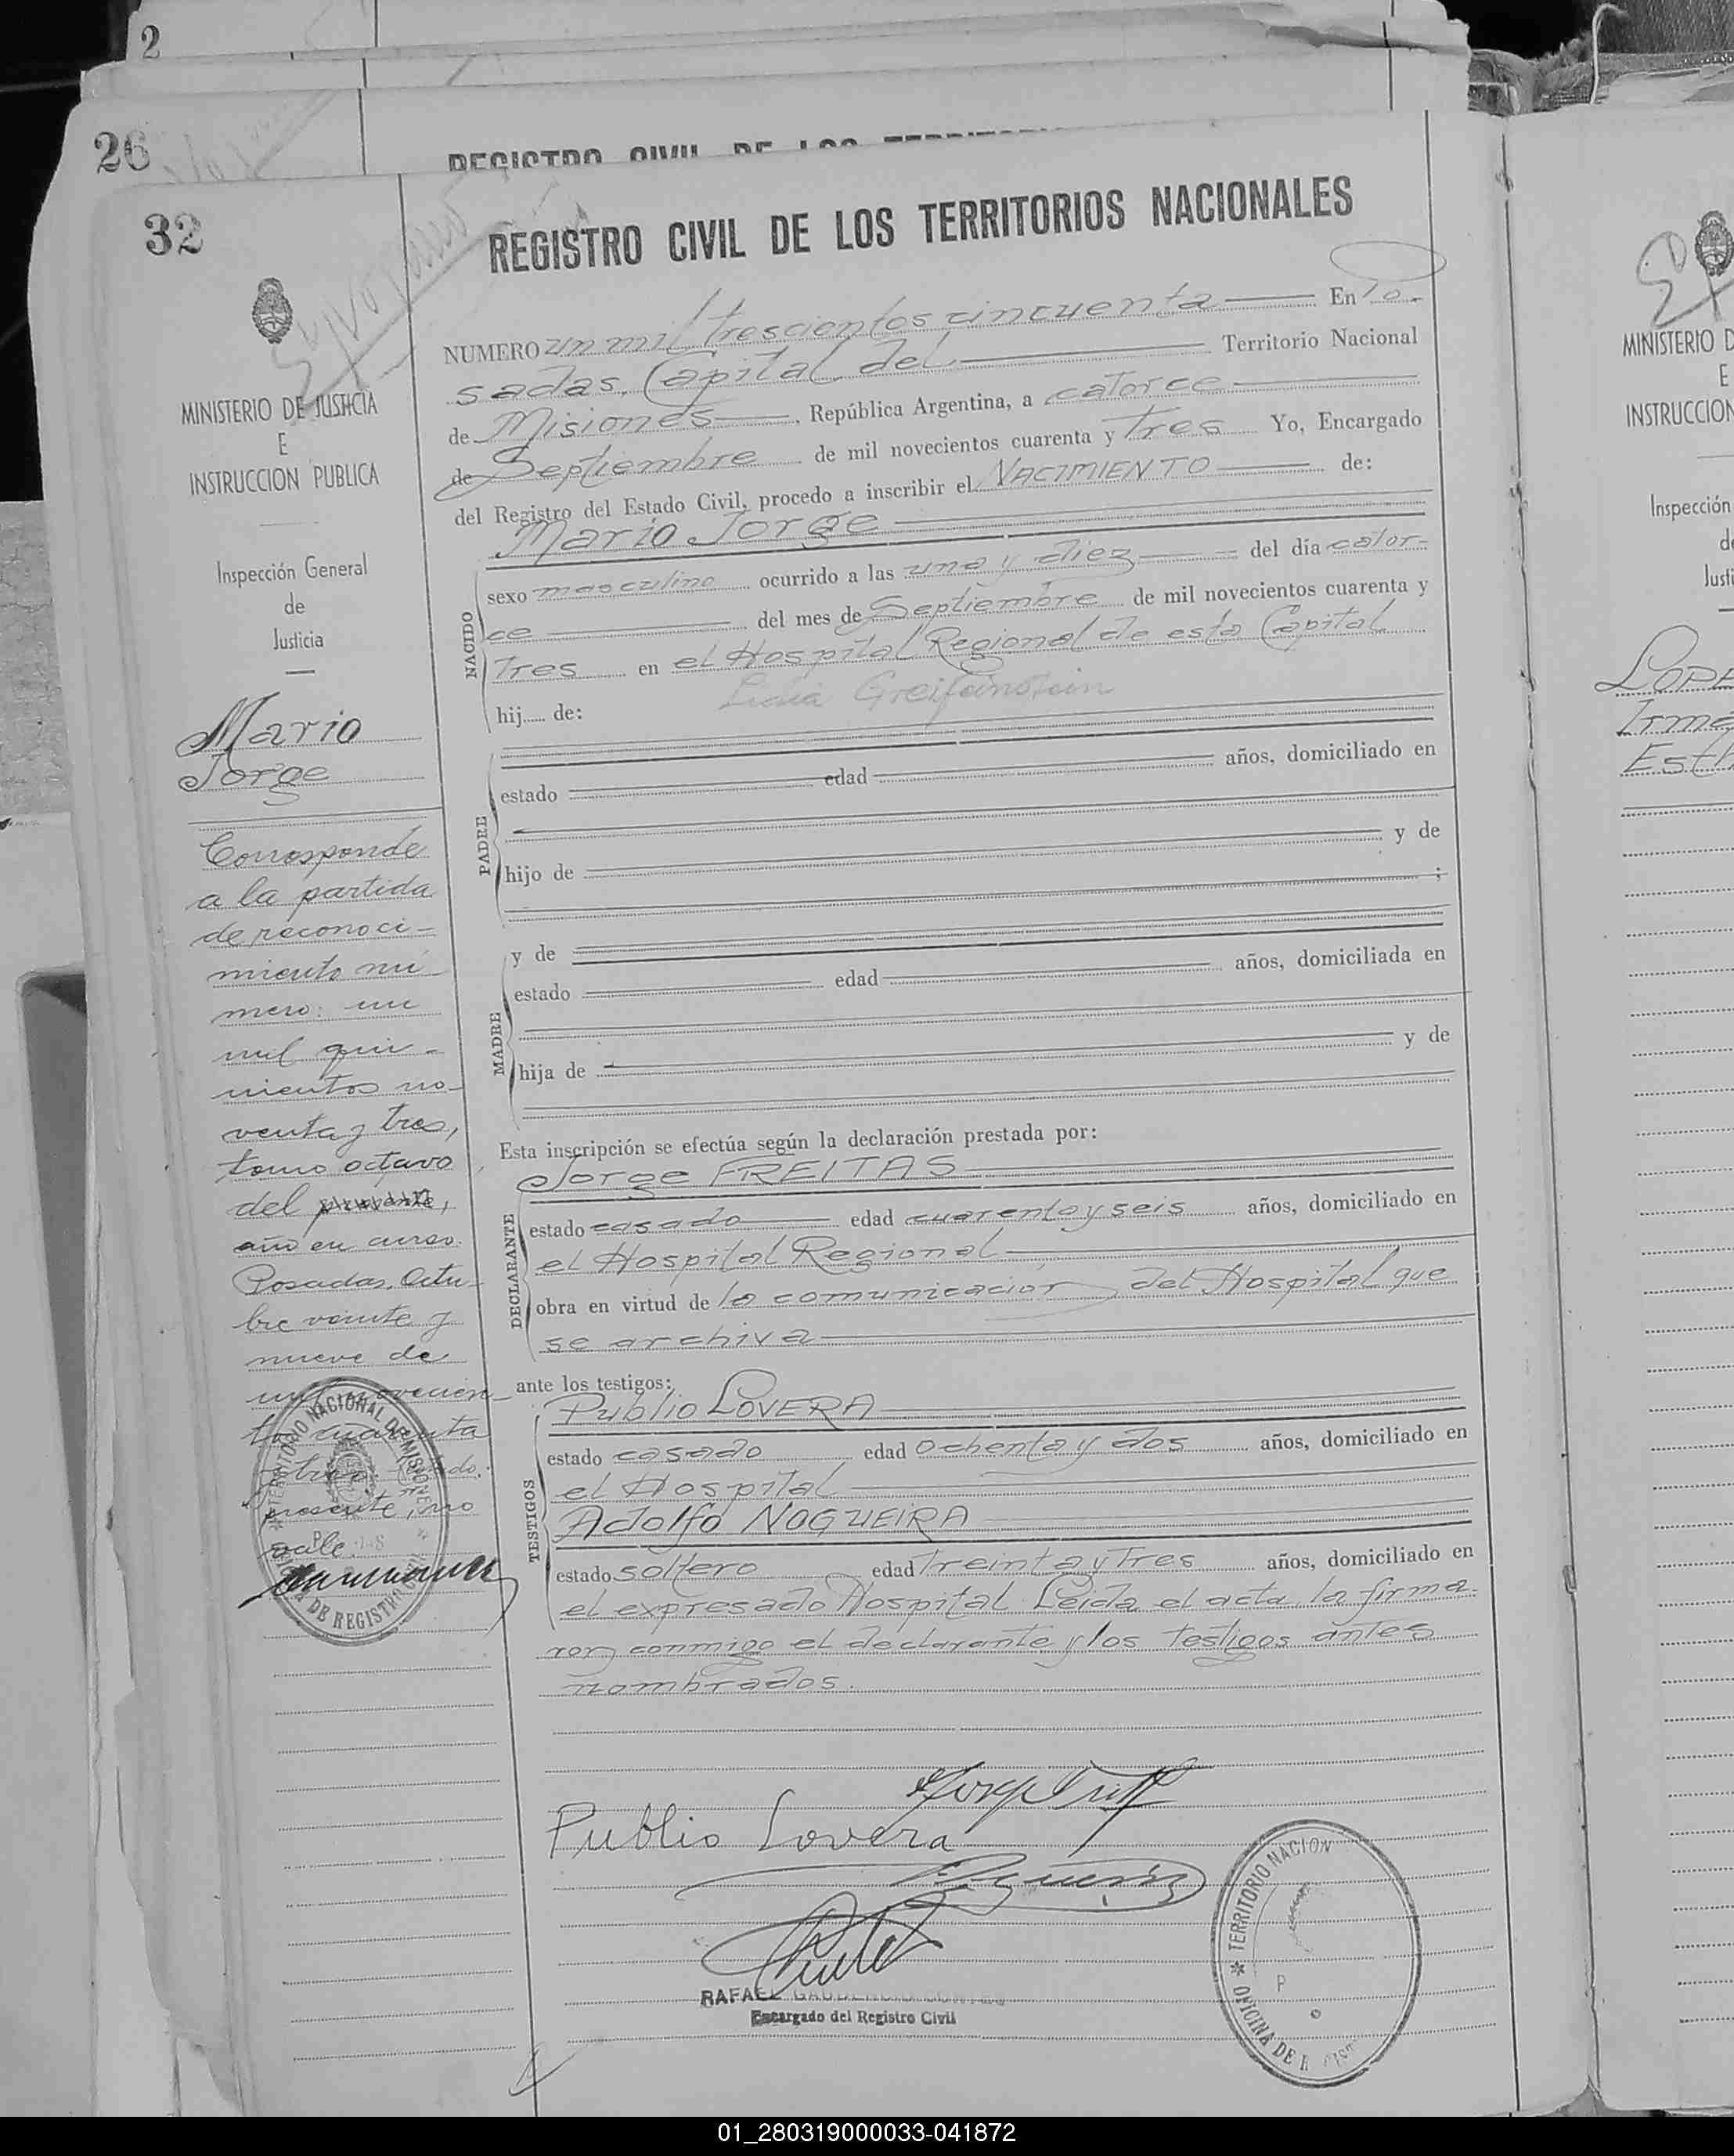 2
26
REGISTRO CIVIL DE LOS
32
REGISTRO CIVIL DE LOS TERRITORIOS NACIONALES
MINISTERIO DE JUSTICIA
E
INSTRUCCION PUBLICA
Inspección General
de
Justicia
Mario
Jorge
Corresponde
a la partida
de reconoci-
miento nú-
mero: un
mil qui-
nientos no-
venta y tres,
tomo octavo
del presente,
año en curso.
Posadas, Octu-
bre veinte y
nueve de
mil novecien-
tos cuarenta
y tres
presente, no
vale.
NUMERO un mil trescientos cincuenta En Po-
sadas, Capital del Territorio Nacional
de Misiones, República Argentina, a catorce
de Septiembre de mil novecientos cuarenta y tres Yo, Encargado
del Registro del Estado Civil, procedo a inscribir el NACIMIENTO de:
Mario Jorge
NACIDO
sexo masculino ocurrido a las una y diez del día cator-
ce del mes de Septiembre de mil novecientos cuarenta y
tres en el Hospital Regional de esta Capital
Lidia Greifenstein
hij de:
PADRE
estado edad años, domiciliado en
hijo de y de
;
MADRE
y de
estado edad años, domiciliada en
hija de y de
Esta inscripción se efectúa según la declaración prestada por:
Jorge FREITAS
DECLARANTE
estado casado edad cuarenta y seis años, domiciliado en
el Hospital Regional
obra en virtud de la comunicación del Hospital que
se archiva
ante los testigos:
Publio LOVERA
TESTIGOS
estado casado edad ochenta y dos años, domiciliado en
el Hospital
Adolfo NOGUEIRA
estado soltero edad treinta y tres años, domiciliado en
el expresado Hospital. Leída el acta, la firma-
ron conmigo el declarante y los testigos antes
nombrados.
Publio Lovera
RAFAEL
Encargado del Registro Civil
TERRITORIO NACIONAL DE MISIONES
DE REGISTRO CIVIL
TERRITORIO NACION
OFICINA DE
MINISTERIO D
E
INSTRUCCION
Inspección
de
Justi
LOPE
Irma
Esth
01_280319000033-041872